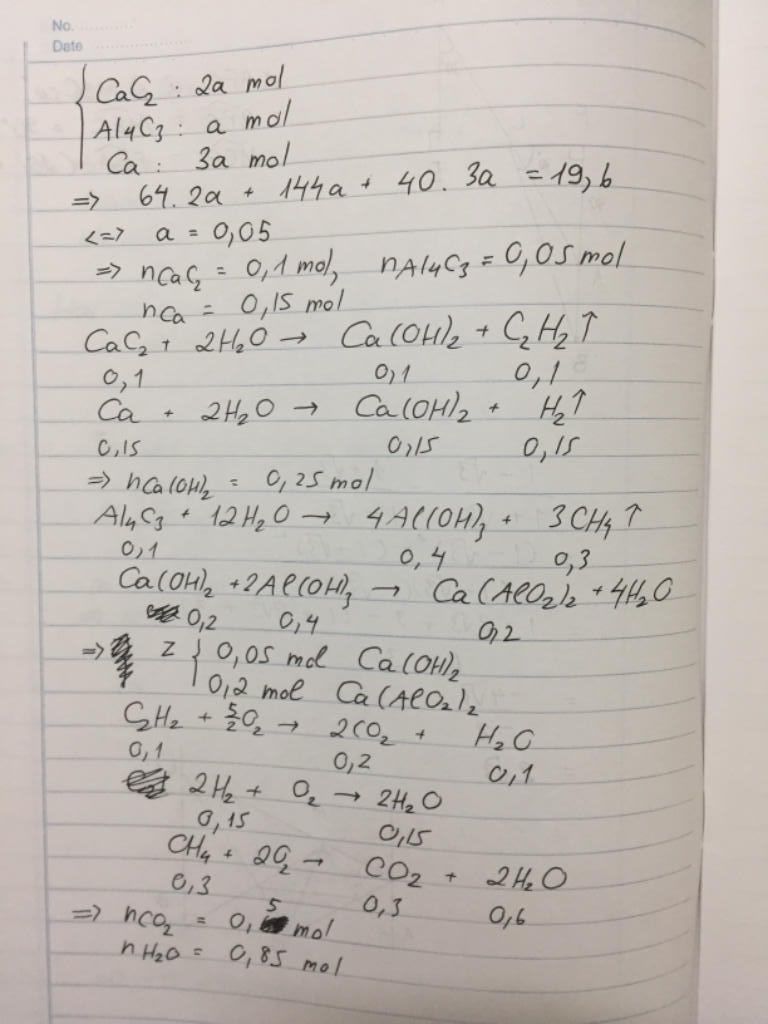 No. ............
Date ..................
CaC₂ : 2a mol
Al4C3 : a mol
Ca : 3a mol
=> 64. 2a + 144a + 40. 3a = 19,6
<=> a = 0,05
=> nCaC₂ = 0,1 mol, nAl4C3 = 0,05 mol
nCa = 0,15 mol
CaC₂ + 2H₂O → Ca(OH)₂ + C₂H₂↑
0,1 0,1 0,1
Ca + 2H₂O → Ca(OH)₂ + H₂↑
0,15 0,15 0,15
=> nCa(OH)₂ = 0,25 mol
Al₄C₃ + 12H₂O → 4Al(OH)₃ + 3CH₄↑
0,1 0,4 0,3
Ca(OH)₂ + 2Al(OH)₃ → Ca(AlO₂)₂ + 4H₂O
0,2 0,4 0,2
=> Z { 0,05 mol Ca(OH)₂
0,2 mol Ca(AlO₂)₂
C₂H₂ + 5/2O₂ → 2CO₂ + H₂O
0,1 0,2 0,1
2H₂ + O₂ → 2H₂O
0,15 0,15
CH₄ + 2O₂ → CO₂ + 2H₂O
0,3 0,3 0,6
=> nCO₂ = 0,5 mol
nH₂O = 0,85 mol